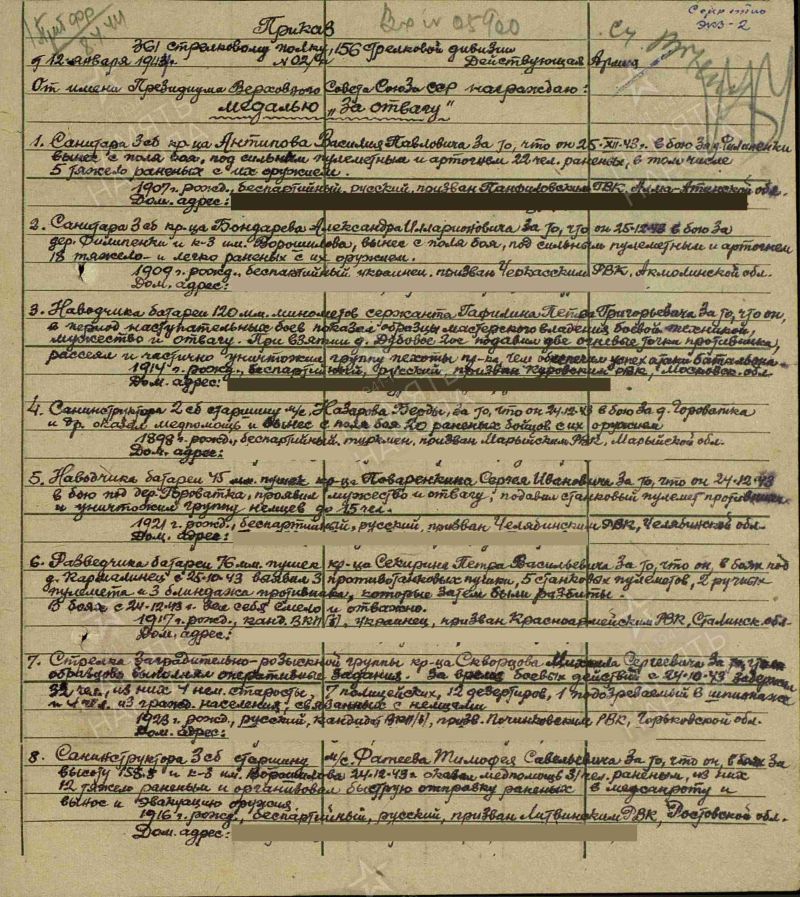 Секретно
Экз-2
Вх № 05900
Приказ
361 стрелковому полку, 156 Стрелковой дивизии
12 января 1944г. № 02/н Действующая Армия
От имени Президиума Верховного Совета Союза ССР награждаю:
медалью „За отвагу"
1. Санитара 3 сб кр-ца Антипова Василия Павловича за то, что он 25-XII-43г. в бою за д. Филипенки
вынес с поля боя, под сильным пулеметным и артогнем 22 чел. раненых, в том числе
5 тяжело раненых с их оружием.
1907г. рожд., беспартийный, русский, призван Панфиловским ГВК, Алма-Атинской обл.
Дом. адрес:
2. Санитара 3 сб кр-ца Бондарева Александра Илларионовича за то, что он 25-12-43 в бою за
дер. Филипенки и к-з им. Ворошилова, вынес с поля боя, под сильным пулеметным и артогнем
18 тяжело- и легко раненых с их оружием.
1909г. рожд., беспартийный, украинец, призван Черкасским РВК, Акмолинской обл.
Дом. адрес:
3. Наводчика батареи 120 мм. минометов сержанта Гафилина Петра Григорьевича за то, что он,
в период наступательных боев показал образцы мастерского владения боевой техникой,
мужество и отвагу. При взятии д. Дубовое 2ое подавил две огневые точки противника,
рассеял и частично уничтожил группу пехоты пр-ка, чем обеспечил успех атаки батальона.
1914г. рожд., беспартийный, русский, призван Куровским РВК, Московск. обл.
Дом. адрес:
4. Санинструктора 2 сб старшину м/с, Назарова Берды, за то, что он 24-12-43 в бою за д. Гороватка
и др. оказал медпомощь и вынес с поля боя 20 раненых бойцов с их оружием
1898г. рожд., беспартийный, туркмен, призван Марыйским РВК, Марыйской обл.
Дом. адрес:
5. Наводчика батареи 45 мм. пушек кр-ца Поваренкина Сергея Ивановича за то, что он 24-12-43
в бою под дер. Гороватка, проявил мужество и отвагу, подавил станковый пулемет противника
и уничтожил группу немцев до 15 чел.
1921г. рожд., беспартийный, русский, призван Челябинским РВК, Челябинской обл.
Дом. адрес:
6. Разведчика батареи 76 мм. пушек кр-ца Секирина Петра Васильевича за то, что он, в боях под
д. Каржалинец с 25-10-43 выявил 3 противотанковых пушки, 5 станковых пулеметов, 2 ручных
пулемета и 3 блиндажа противника, которые затем были разбиты.
В боях с 24-12-43г. вел себя смело и отважно.
1917г. рожд., канд. ВКП/б/, украинец, призван Красноармейским РВК, Сталинск. обл.
Дом. адрес:
7. Стрелка заградительно-розыскной группы кр-ца Скворцова Михаила Сергеевича за то, что он
образцово выполнял оперативные задания. За время боевых действий с 24-10-43 задержал
32 чел., из них 4 нем. старосты, 7 полицейских, 12 дезертиров, 1 подозреваемый в шпионаже
и 4 чел. из гражд. населения, связанных с немцами
1923г. рожд., русский, кандидат ВКП/б/, призв. Починковским РВК, Горьковской обл.
Дом. адрес:
8. Санинструктора 3 сб старшину м/с. Фатеева Тимофея Савельевича за то, что он, в боях за
высоту 158,8 и к-з им. Ворошилова 24-12-43г. оказал медпомощь 31 чел. раненым, из них
12 тяжело раненым и организовал быструю отправку раненых в медсанроту и
вынос и эвакуацию оружия
1916г. рожд., беспартийный, русский, призван Литвинским РВК, Ростовской обл.
Дом. адрес: